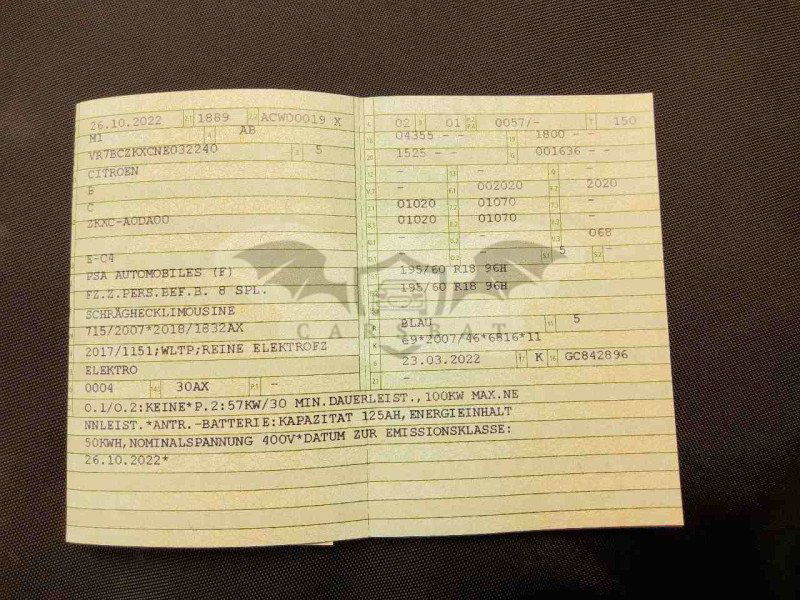 26.10.2022 2.1 1889 2.2 ACWD0019 X
M1 4 AB
VR7BCZKXCNE032240 3 5
CITROEN
B
C
ZKXC-A0DA00
E-C4
PSA AUTOMOBILES (F)
FZ.Z.PERS.BEF.B. 8 SPL.
SCHRÄGHECKLIMOUSINE
715/2007*2018/1832AX
2017/1151;WLTP;REINE ELEKTROFZ
ELEKTRO
0004 14.1 30AX P.1 -
L 02 9 01 P.2 P.4 0057/- T 150
18 04355 - - 19 1800 - -
20 1525 - - G 001636 - -
12 - 13 - Q -
V.7 - F.1 002020 F.2 2020
7.1 01020 7.2 01070 7.3 -
8.1 01020 8.2 01070 8.3 -
U.1 - U.2 - U.3 068
O.1 - O.2 - S.1 5 S.2 -
195/60 R18 96H
195/60 R18 96H
R BLAU 11 5
K e9*2007/46*6816*11
6 23.03.2022 17 K 16 GC842896
21 -
O.1/O.2:KEINE*P.2:57KW/30 MIN.DAUERLEIST.,100KW MAX.NE
NNLEIST.*ANTR.-BATTERIE:KAPAZITAT 125AH,ENERGIEINHALT
50KWH,NOMINALSPANNUNG 400V*DATUM ZUR EMISSIONSKLASSE:
26.10.2022*
CARSBAT